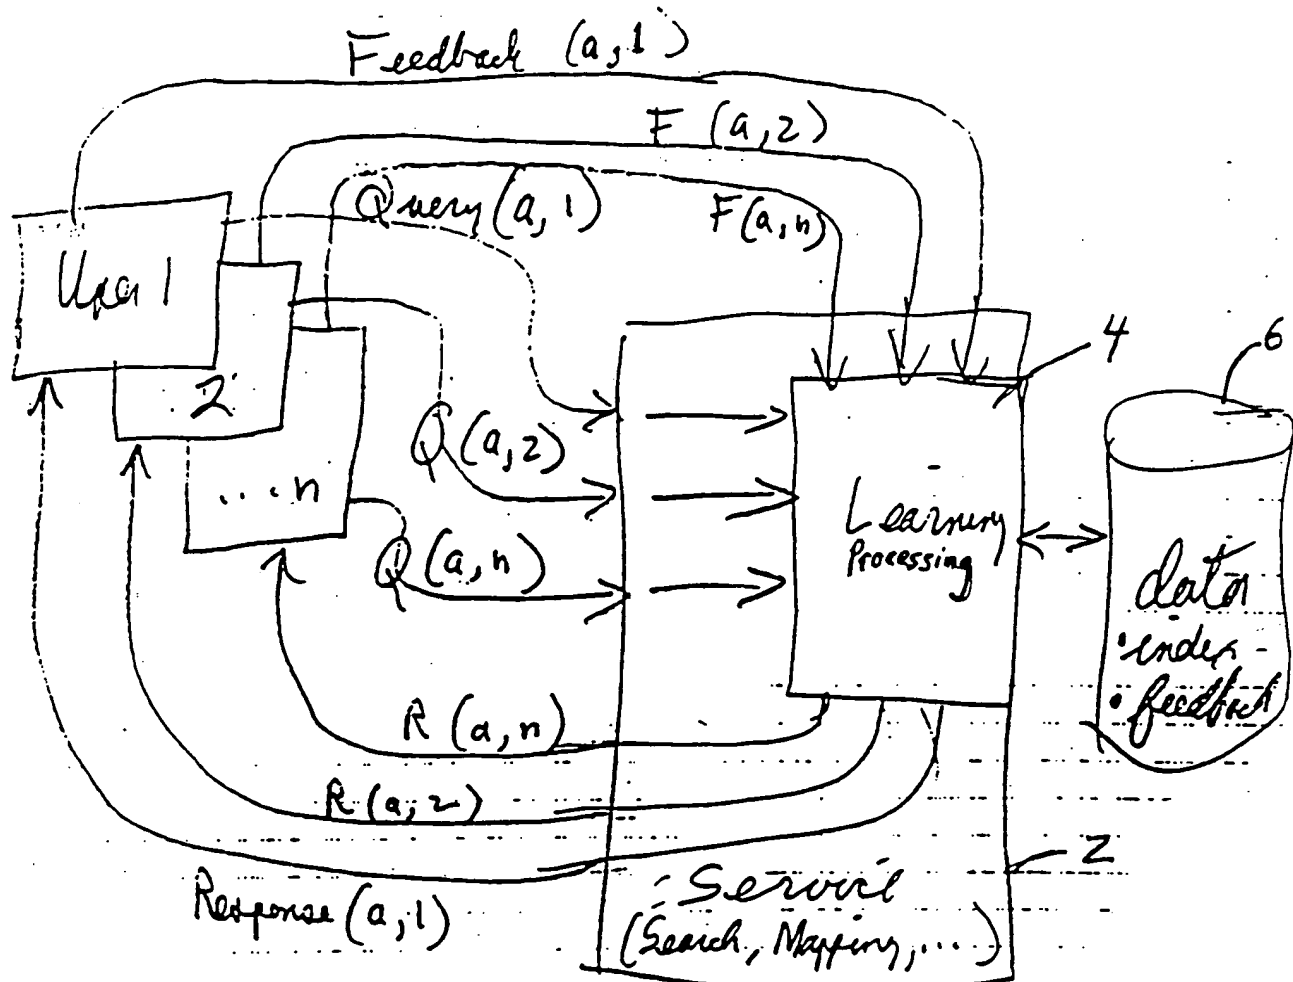 Feedback (a,1)
F (a,2)
Query (a,1)
F(a,n)
User 1
4
6
2
Q (a,2)
... n
Learning
Processing
Q (a,n)
data
• index
• feedback
R (a,n)
R (a,2)
2
Response (a,1)
Service
(Search, Mapping, ...)